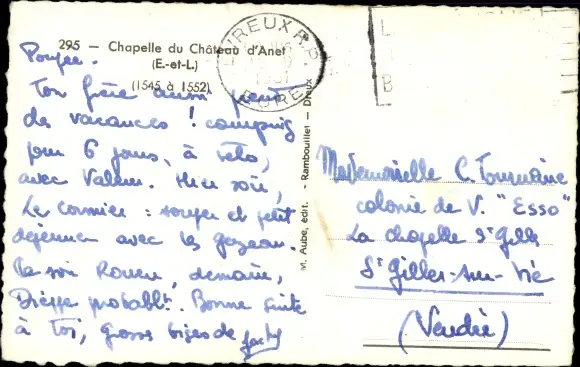 295 — Chapelle du Château d'Anet
(E.-et-L.)
(1545 à 1552)
Poupée.
Ton frère aussi prend
des vacances ! camping
pour 6 jours, à vélo,
avec Valeur. Hier soir,
Le Cormier : souper et petit
déjeuner avec les
Ce soir Rouen, demain,
Dieppe probablt. Bonne suite
à toi, grosses bises de
M. Aube, édit. - Rambouillet - Dreux
EVREUX R.P.
EURE
Mademoiselle C. Tournaire
colonie de V. "Esso"
La chapelle St Gilles
St Gilles-sur-Vie
(Vendée)